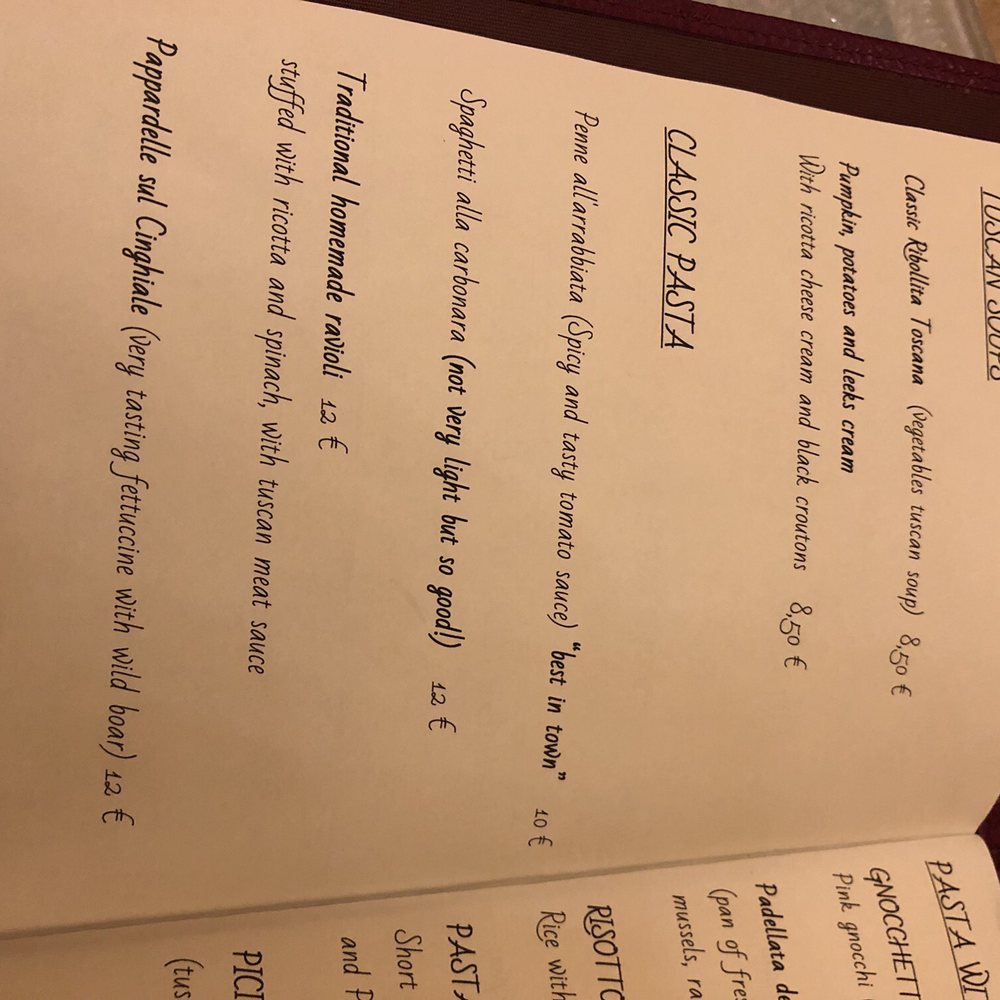 TUSCAN SOUPS
Classic Ribollita Toscana (vegetables tuscan soup) 8,50 €
Pumpkin, potatoes and leeks cream
With ricotta cheese cream and black croutons 8,50 €
CLASSIC PASTA
Penne all'arrabbiata (Spicy and tasty tomato sauce) "best in town" 10 €
Spaghetti alla carbonara (not very light but so good!) 12 €
Traditional homemade ravioli 12 €
stuffed with ricotta and spinach, with tuscan meat sauce
Pappardelle sul Cinghiale (very tasting fettuccine with wild boar) 12 €
PASTA WI
GNOCCHETT
Pink gnocchi
Padellata de
(pan of fres
mussels, ra
RISOTTO
Rice with
PASTA
Short
and P
PICI
(tus